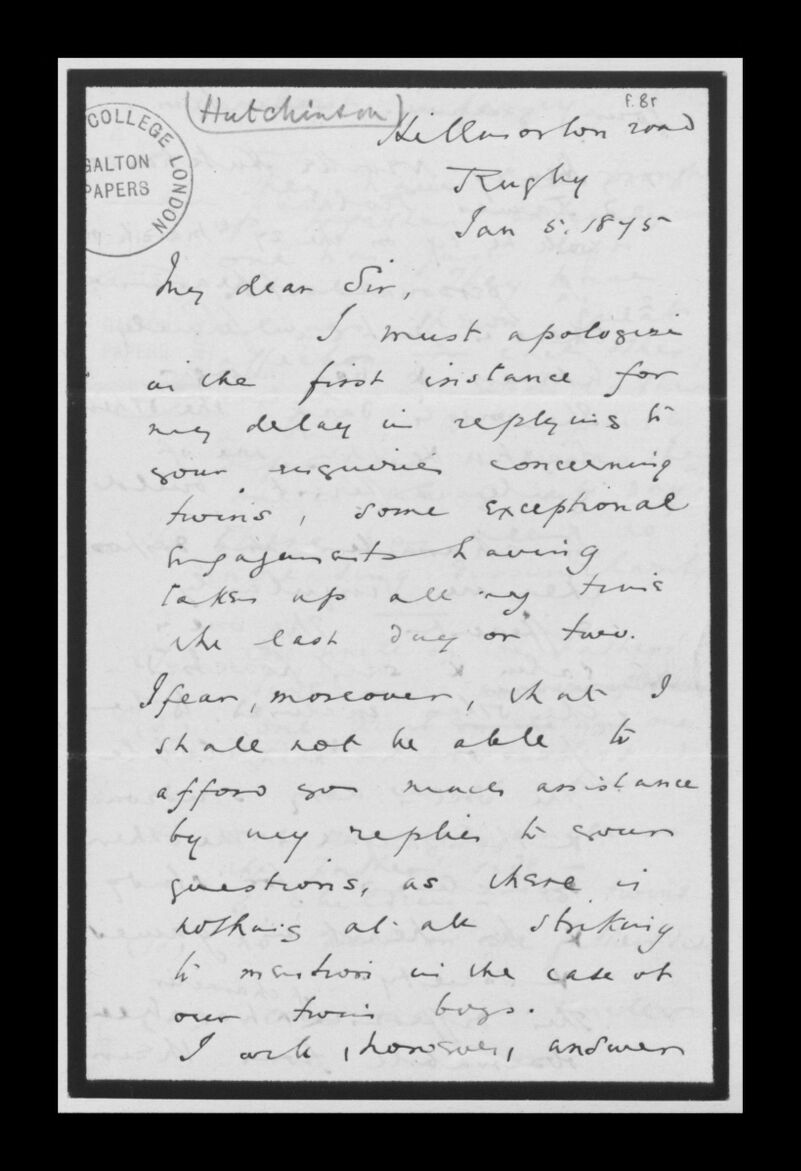 (Hutchinson)
f. 8r
COLLEGE LONDON
GALTON
PAPERS
Hillmorton road
Rugby
Jan 5. 1875
My dear Sir,
I must apologize
in the first instance for
my delay in replying to
your enquiries concerning
twins, some exceptional
engagements having
taken up all my time
the last day or two.
I fear, moreover, that I
shall not be able to
afford you much assistance
by my replies to your
questions, as there is
nothing at all striking
to mention in the case of
our twin boys.
I will, however, answer